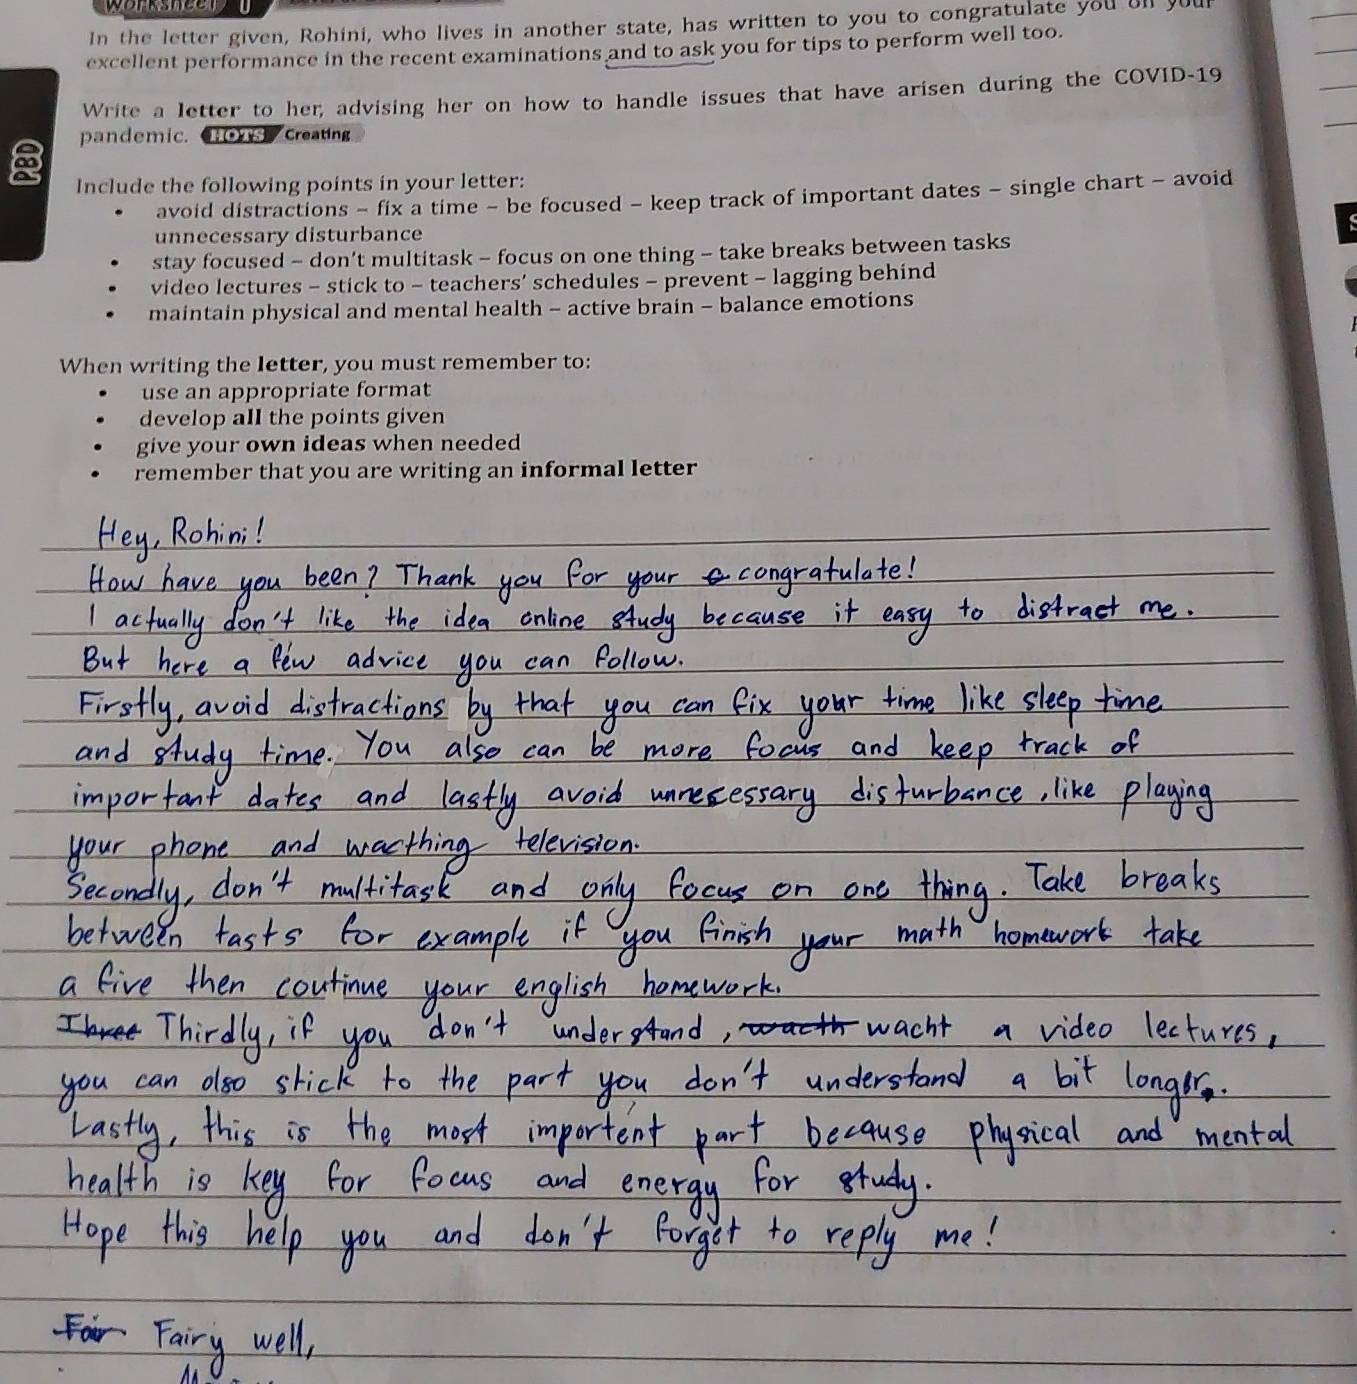 Worksheet
In the letter given, Rohini, who lives in another state, has written to you to congratulate you on your
excellent performance in the recent examinations and to ask you for tips to perform well too.
Write a letter to her, advising her on how to handle issues that have arisen during the COVID-19
pandemic. HOTS Creating
PBD
Include the following points in your letter:
• avoid distractions – fix a time – be focused – keep track of important dates – single chart – avoid
unnecessary disturbance
• stay focused – don't multitask – focus on one thing – take breaks between tasks
• video lectures – stick to – teachers' schedules – prevent – lagging behind
• maintain physical and mental health – active brain – balance emotions
When writing the letter, you must remember to:
• use an appropriate format
• develop all the points given
• give your own ideas when needed
• remember that you are writing an informal letter
Hey, Rohini!
How have you been? Thank you for your congratulate!
I actually don't like the idea online study because it easy to distract me.
But here a few advice you can follow.
Firstly, avoid distractions by that you can fix your time like sleep time
and study time. You also can be more focus and keep track of
important dates and lastly avoid unnecessary disturbance, like playing
your phone and wacthing television.
Secondly, don't multitask and only focus on one thing. Take breaks
between tasts for example if you finish your math homework take
a five then coutinue your english homework.
Three Thirdly, if you don't understand, wacth wacht a video lectures,
you can also stick to the part you don't understand a bit longer.
Lastly, this is the most importent part because physical and mental
health is key for focus and energy for study.
Hope this help you and don't forget to reply me!
Fair Fairy well,